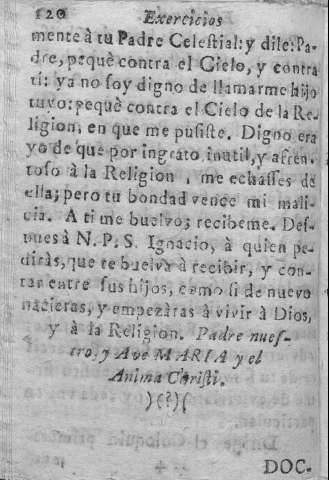 120 Exercicios
mente à tu Padre Celestial: y dile: Pa-
dre, pequè contra el Cielo, y contra
ti: ya no soy digno de llamarme hijo
tuyo: pequè contra el Cielo de la Re-
ligion, en que me pusiste. Digno era
yo de que por ingrato, inutil, y afren-
toso à la Religion, me echasses de
ella; pero tu bondad vence mi mali-
cia. A ti me buelvo; recibeme. Des-
pues à N. P. S. Ignacio, à quien pe-
diràs, que te buelva à recibir, y con-
tar entre sus hijos, como si de nuevo
nacieras, y empezàras à vivir à Dios,
y à la Religion. Padre nues-
tro, y Ave MARIA y el
Anima Christi.
)(?)(
DOC.